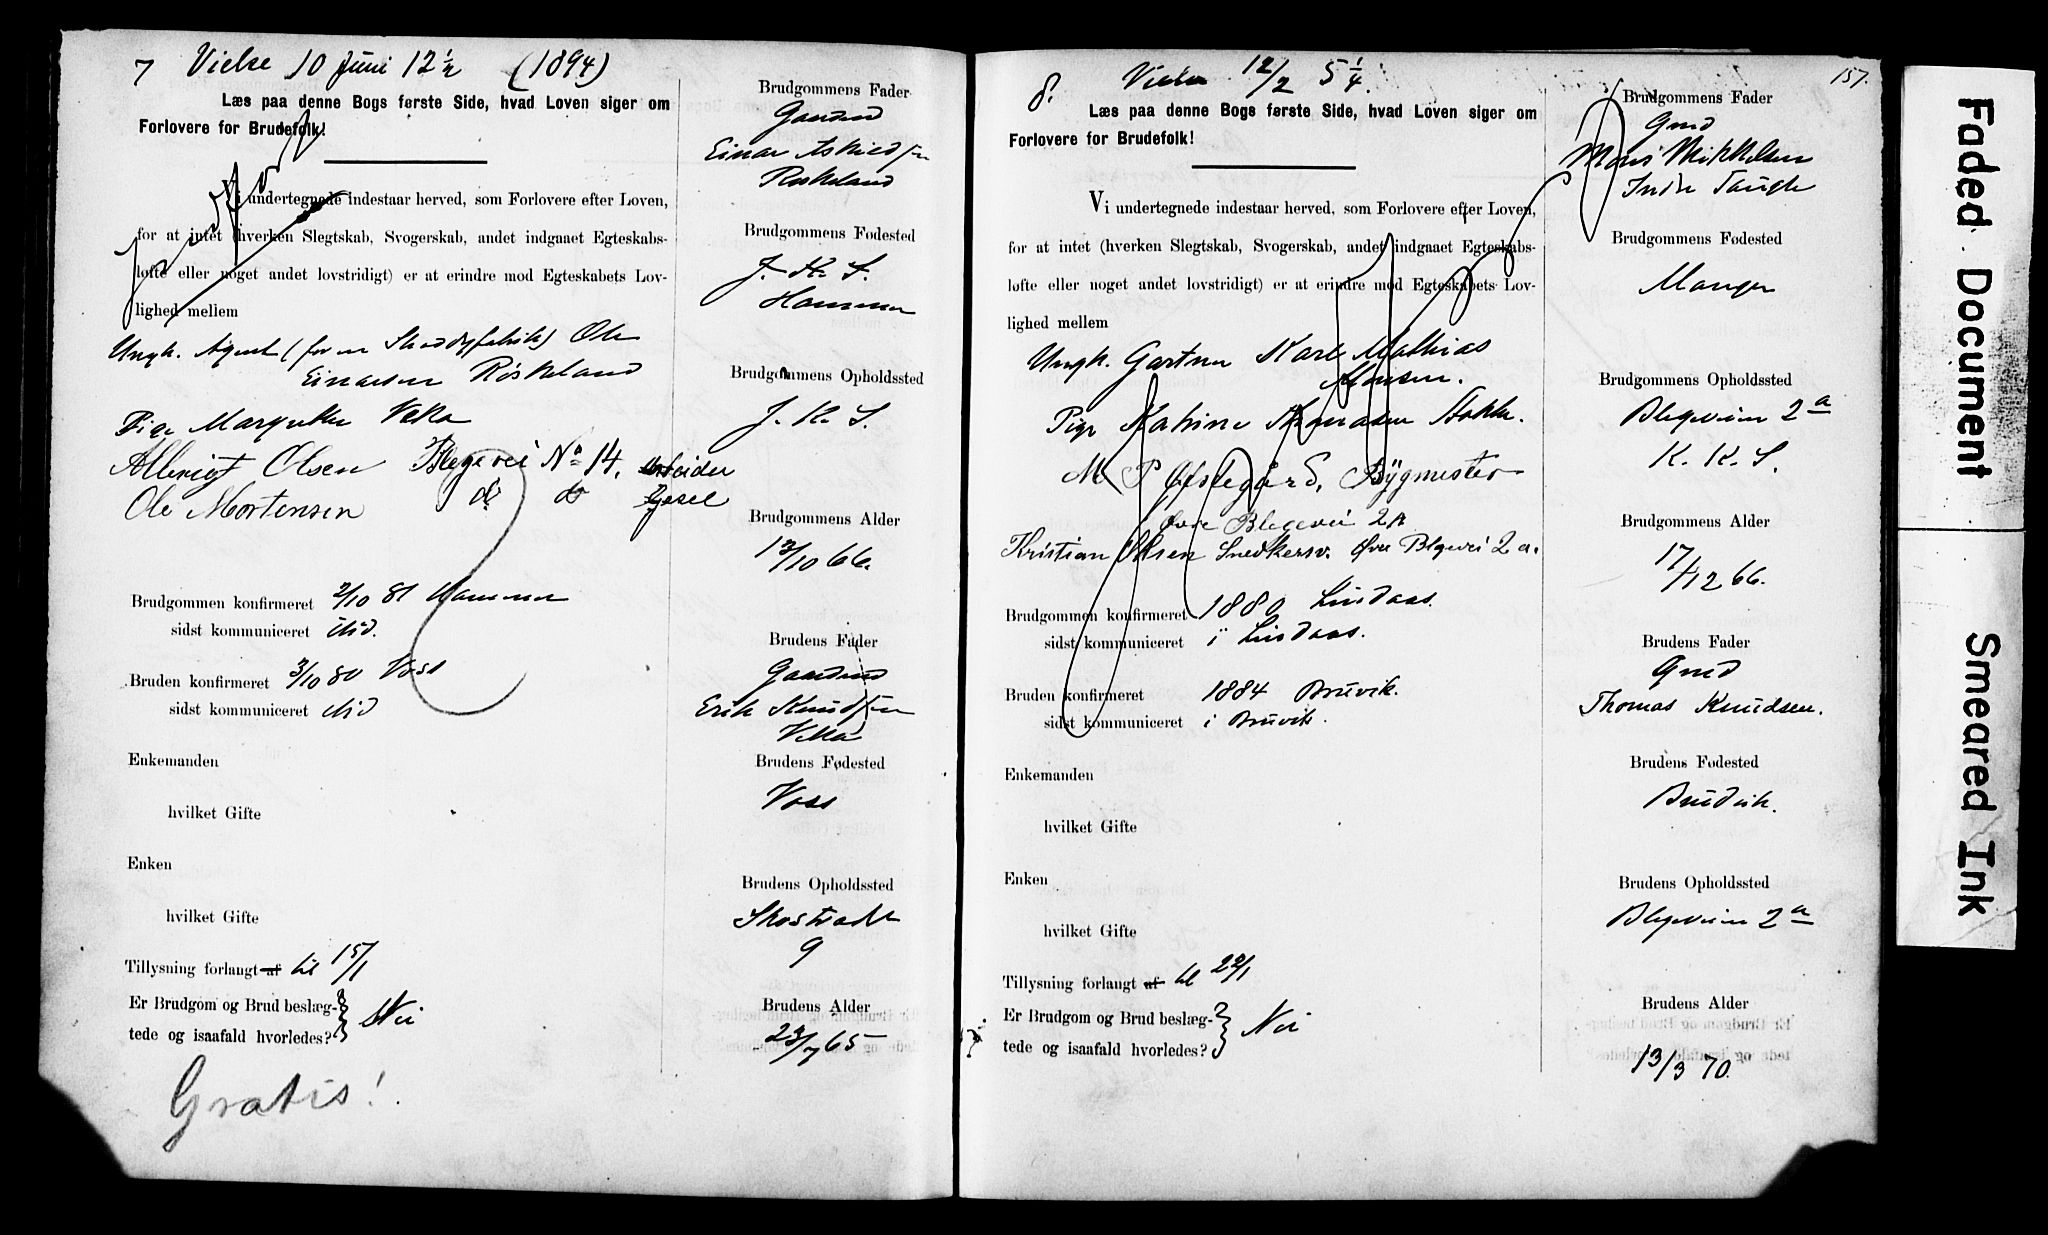 7 Vielse 10 Juni 12½ (1894)
Læs paa denne Bogs første Side, hvad Loven siger om
Forlovere for Brudefolk!
Vi undertegnede indestaar herved, som Forlovere efter Loven,
for at intet (hverken Slegtskab, Svogerskab, andet indgaaet Egteskabs-
løfte eller noget andet lovstridigt) er at erindre mod Egteskabets Lov-
lighed mellem
Ungk. Agent (for en Shoddyfabrik) Ole
Einarsen Röskeland
Pige Margrethe Veka
Alberigt Olsen Blegevei No 14. Arbeider
Ole Mortensen do do Gjesel
Brudgommen konfirmeret 2/10 81 Hammer
sidst kommuniceret ibid.
Bruden konfirmeret 3/10 80 Voss
sidst kommuniceret ibid
Enkemanden
hvilket Gifte
Enken
hvilket Gifte
Tillysning forlangt af til 15/1
Er Brudgom og Brud beslæg-
tede og isaafald hvorledes? Nei
Gratis!
Brudgommens Fader
Gaardmd
Einar Askildsen
Röskeland
Brudgommens Fødested
Hammer
Brudgommens Opholdssted
J. K. S.
Brudgommens Alder
13/10 66.
Brudens Fader
Gaardmd
Erik Knudsen
Veka
Brudens Fødested
Voss
Brudens Opholdssted
Skostræde
9
Brudens Alder
23/7 65
157.
8. Vielse 12/2 5¼.
Læs paa denne Bogs første Side, hvad Loven siger om
Forlovere for Brudefolk!
Vi undertegnede indestaar herved, som Forlovere efter Loven,
for at intet (hverken Slegtskab, Svogerskab, andet indgaaet Egteskabs-
løfte eller noget andet lovstridigt) er at erindre mod Egteskabets Lov-
lighed mellem
Ungk. Gartner Karl Mathias
Monsen.
Pige Katrine Thomasen Stokke.
M P Øfstegård, Bygmester
Øvre Blegevei 2A
Kristian Olsen Snedkersv. Øvre Blegevei 2 a.
Brudgommen konfirmeret 1880 Lindaas.
sidst kommuniceret i Lindaas.
Bruden konfirmeret 1884 Bruvik.
sidst kommuniceret i Bruvik.
Enkemanden
hvilket Gifte
Enken
hvilket Gifte
Tillysning forlangt af til 22/1
Er Brudgom og Brud beslæg-
tede og isaafald hvorledes? Nei
Brudgommens Fader
Gmd
Mons Mikkelsen
Indre
Brudgommens Fødested
Manger
Brudgommens Opholdssted
Blegeveien 2 a
K. K. S.
Brudgommens Alder
17/12 66.
Brudens Fader
Gmd
Thomas Knudsen.
Brudens Fødested
Bruvik.
Brudens Opholdssted
Blegeveien 2 a
Brudens Alder
13/3 70.
Faded Document
Smeared Ink